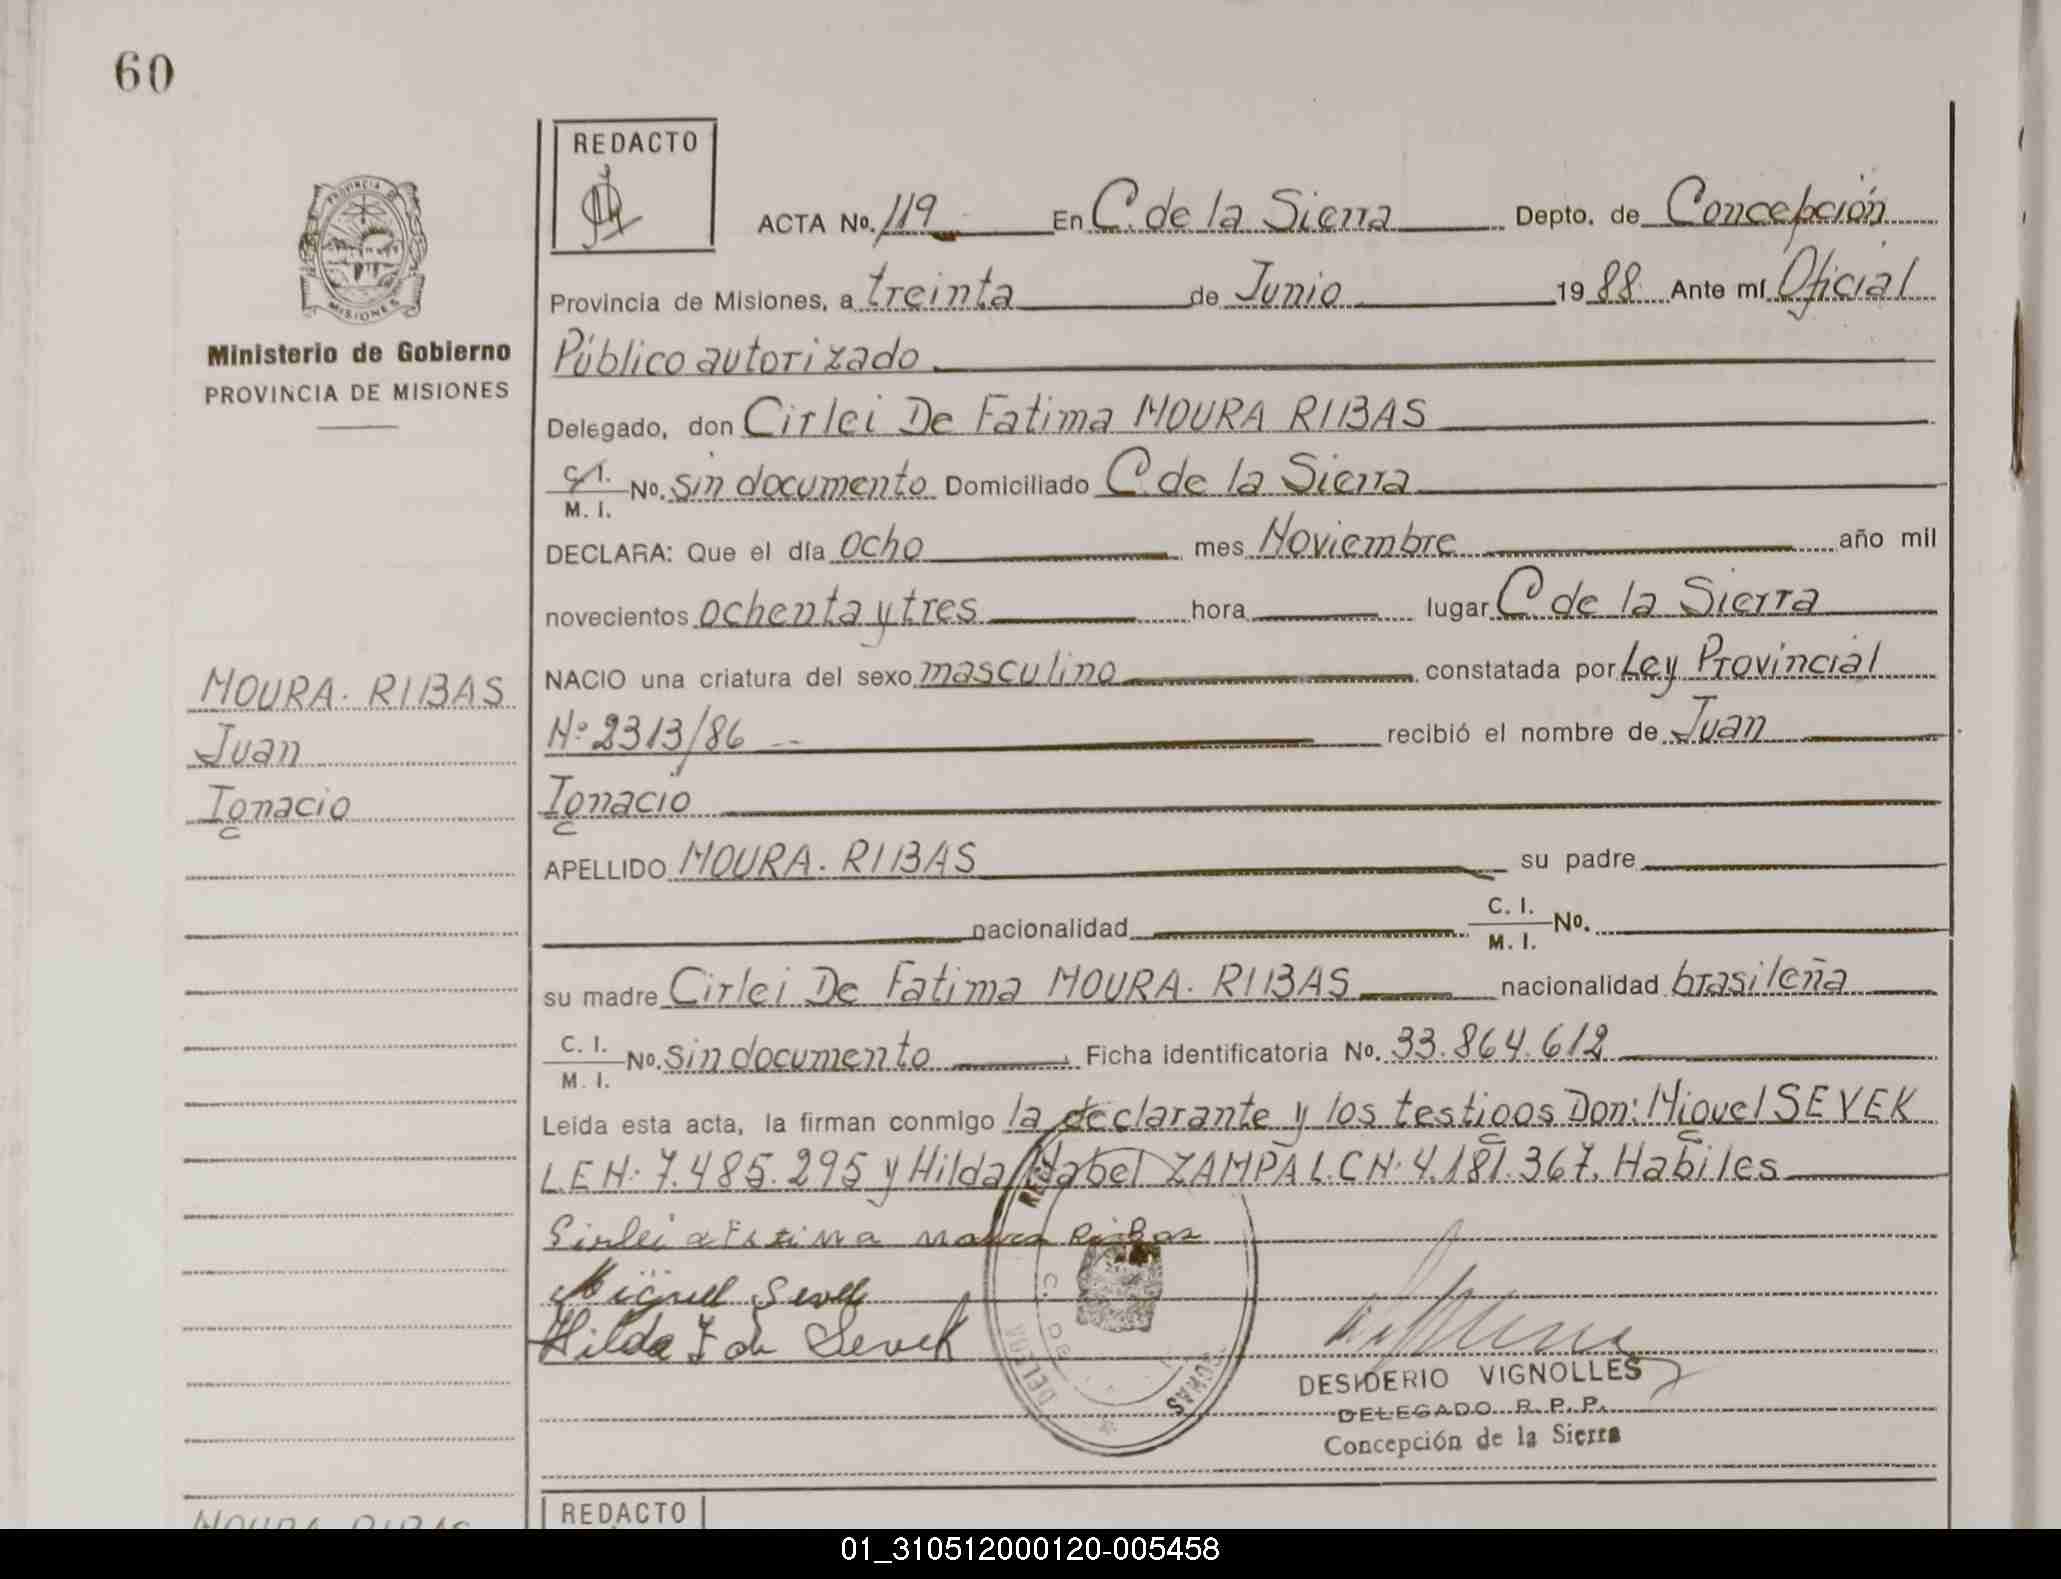 60
REDACTO
ACTA No. 119 En C. de la Sierra Depto. de Concepción
Provincia de Misiones, a treinta de Junio 1988 Ante mí Oficial
Público autorizado
Delegado, don Cirlei De Fatima MOURA RIBAS
C. I. M. I. No. sin documento Domiciliado C. de la Sierra
DECLARA: Que el día ocho mes Noviembre año mil
novecientos ochenta y tres hora lugar C. de la Sierra
NACIO una criatura del sexo masculino constatada por Ley Provincial
Nº 2313/86 recibió el nombre de Juan
Ignacio
APELLIDO MOURA. RIBAS su padre
nacionalidad C. I. M. I. No.
su madre Cirlei De Fatima MOURA. RIBAS nacionalidad brasileña
C. I. M. I. No. sin documento Ficha identificatoria No. 33.864.612
Leída esta acta, la firman conmigo la declarante y los testigos Don: Miguel SEVEK
L.E N: 7.485.295 y Hilda Mabel ZAMPA L.C N: 4.181.367. Habiles
Miguel Sevek
Hilda Z de Sevek
DESIDERIO VIGNOLLES
DELEGADO R. P. P.
Concepción de la Sierra
PROVINCIA DE
MISIONES
Ministerio de Gobierno
PROVINCIA DE MISIONES
MOURA. RIBAS
Juan
Ignacio
REDACTO
MOURA RIBAS
01_310512000120-005458